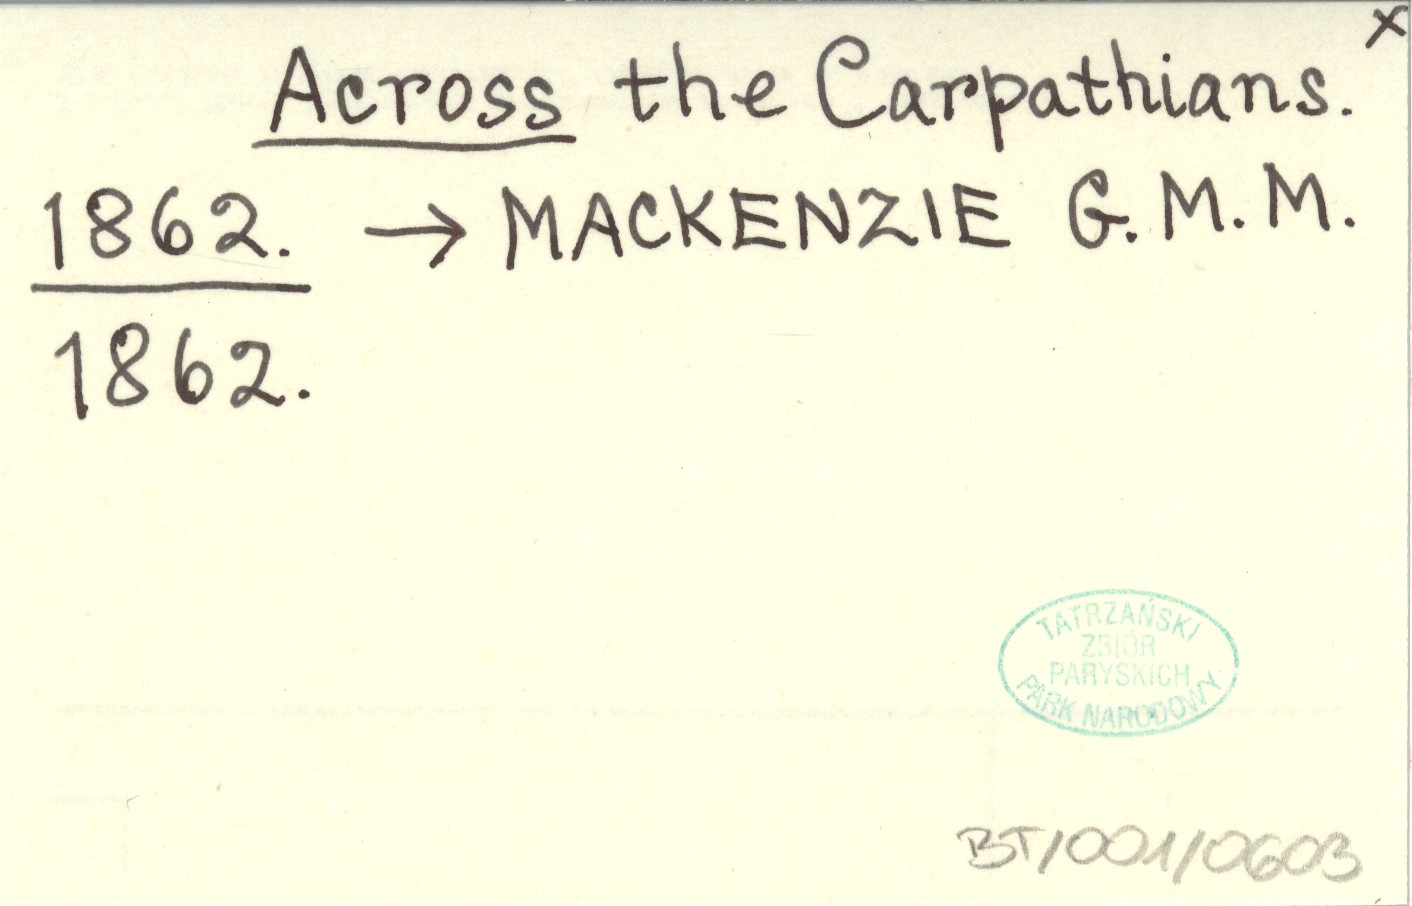 x
Across the Carpathians.
1862. → MACKENZIE G. M. M.
1862.
TATRZAŃSKI
ZBIÓR
PARYSKICH
PARK NARODOWY
BT/001/0603